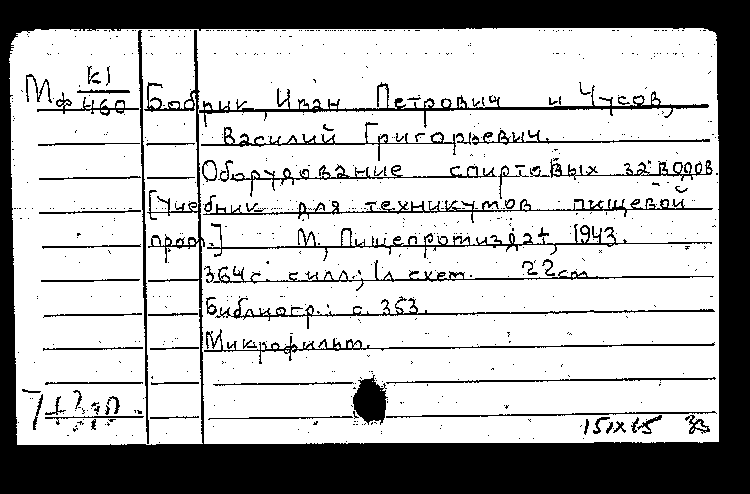 Мф К1/460 Бобрик, Иван Петрович и Чусов,
Василий Григорьевич.
Оборудование спиртовых заводов.
[Учебник для техникумов пищевой
пром.] М., Пищепромиздат, 1943.
364 с. с илл.; 1 л схем. 22 см
Библиогр.: с. 363.
Микрофильм.
151X65